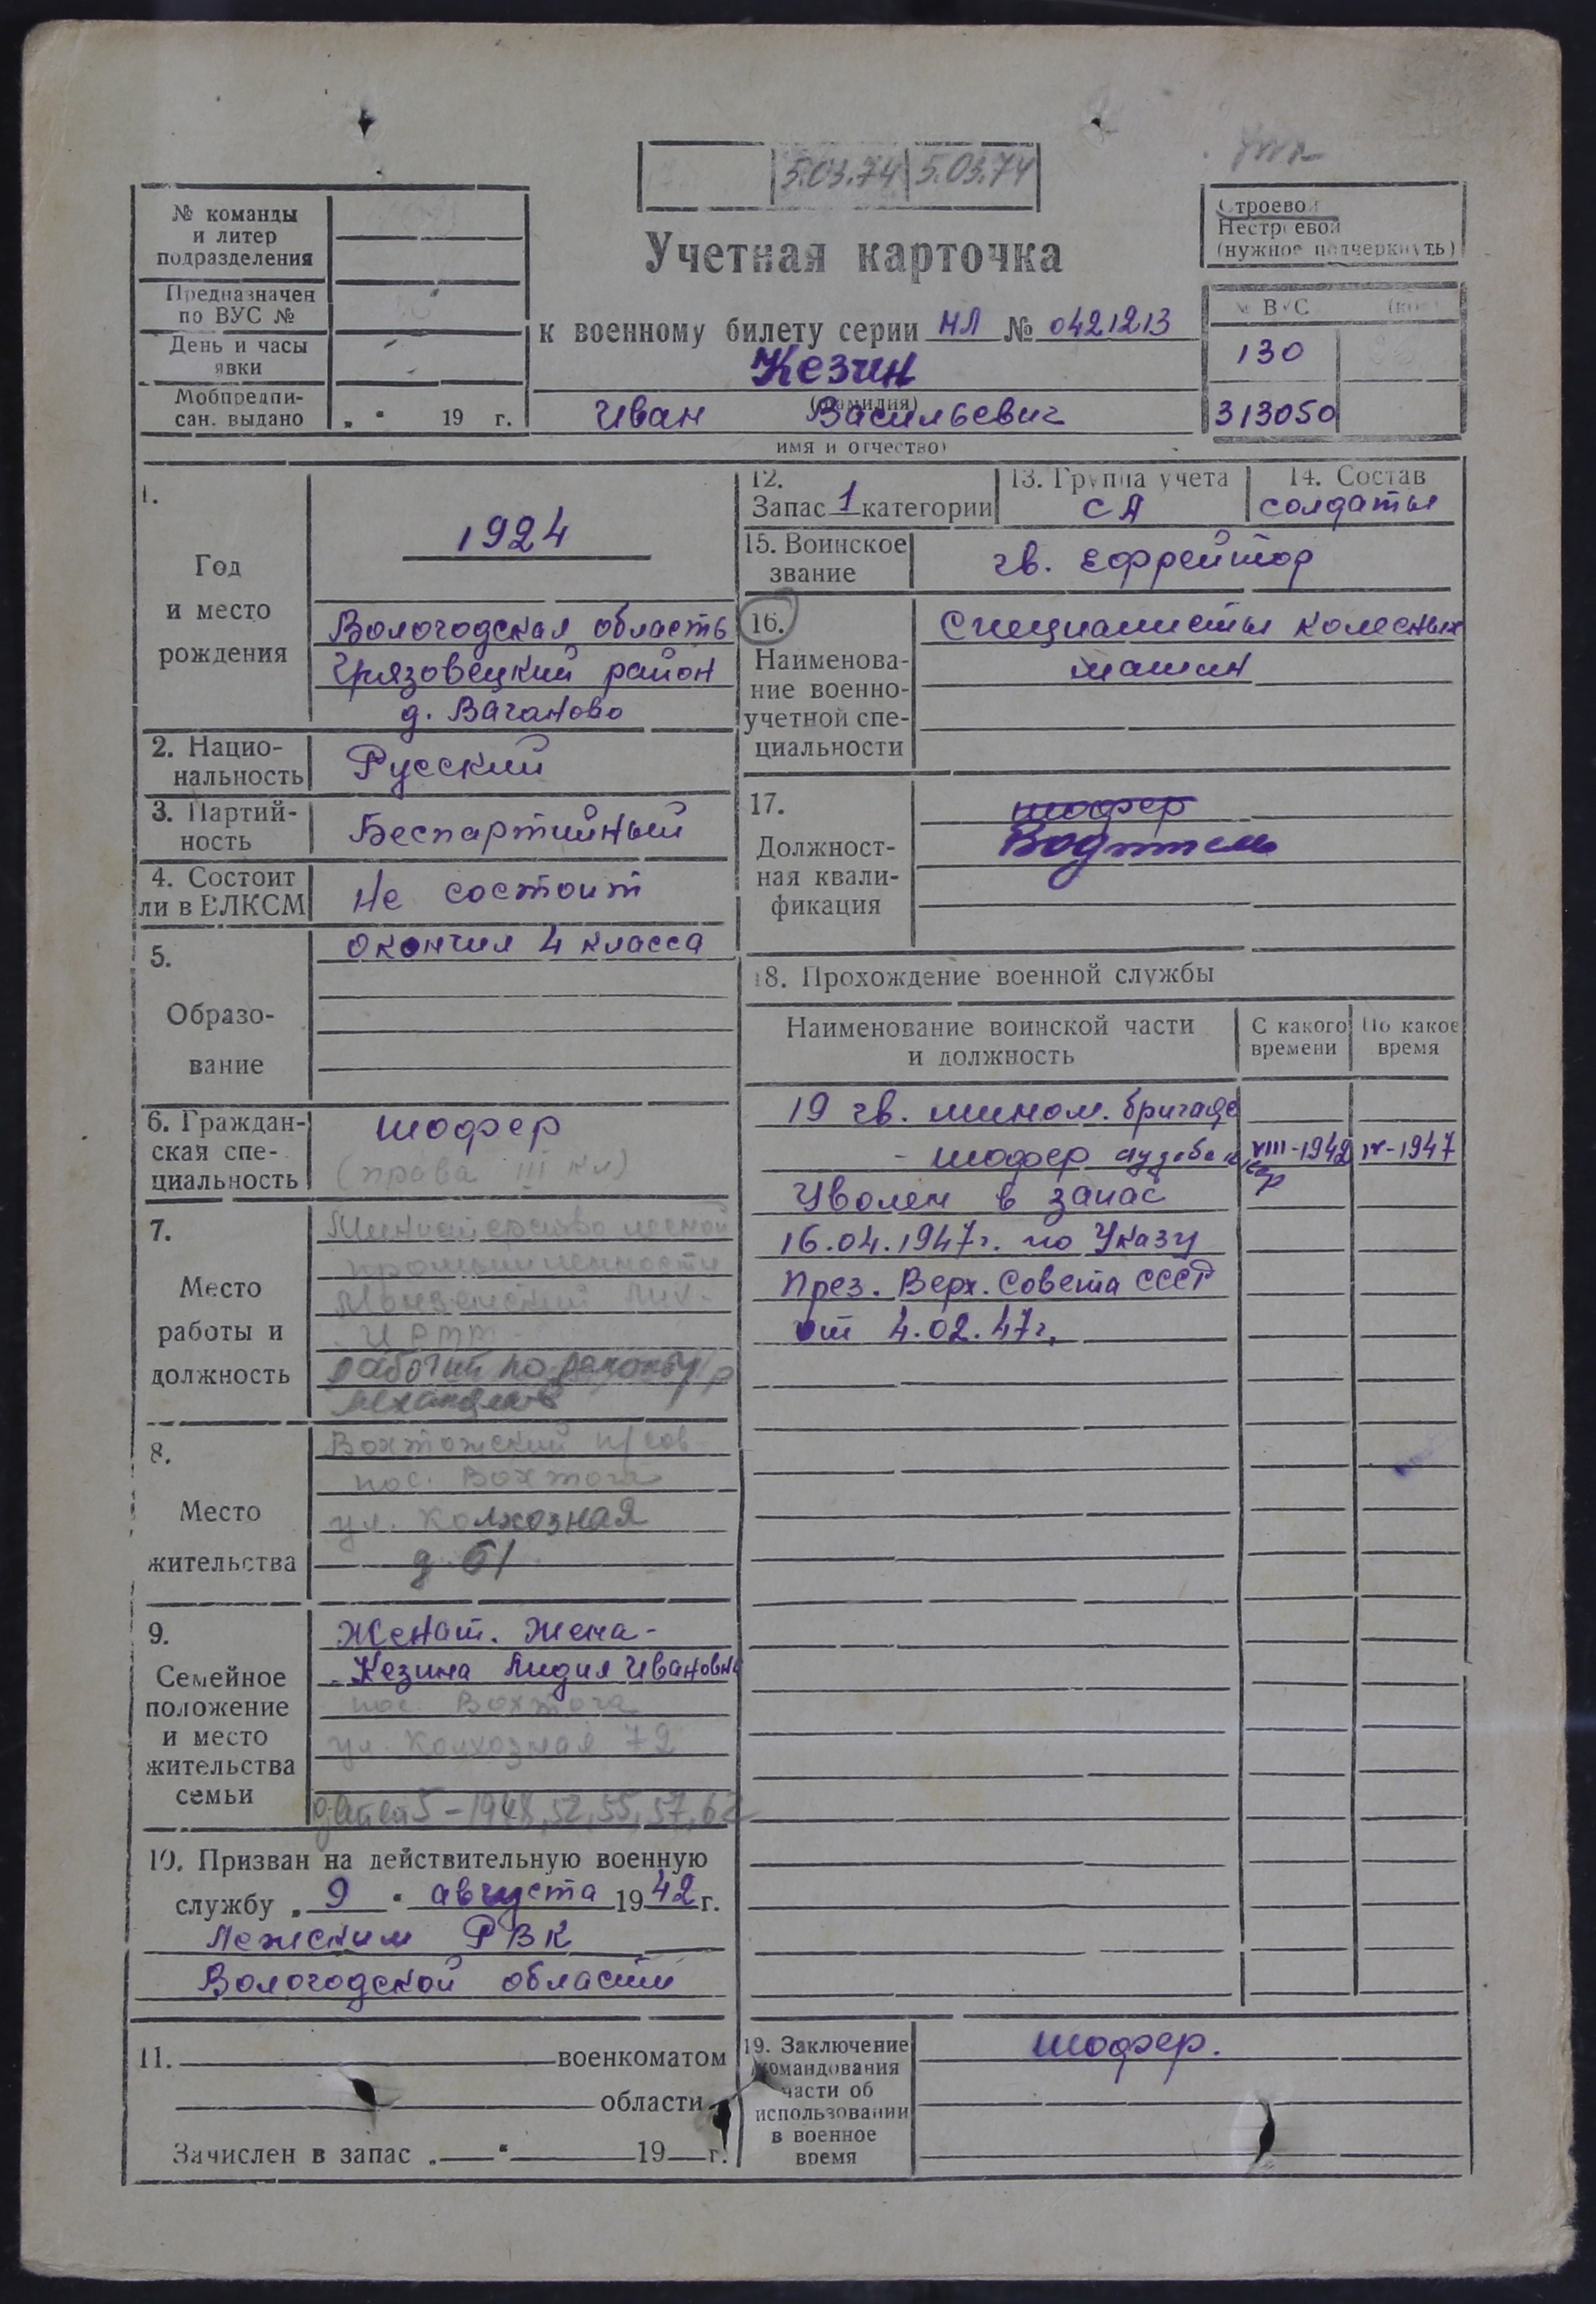 5.03.74 5.03.74
№ команды
и литер
подразделения
Предназначен
по ВУС №
День и часы
явки
Мобпредпи-
сан. выдано „ “ 19 г.
Учетная карточка
к военному билету серии НЛ № 0421213
Кезин
(фамилия)
Иван Васильевич
имя и отчество)
Строевой
Нестроевой
(нужное подчеркнуть)
№ ВУС (код)
130
313050
1.
Год
и место
рождения
1924
Вологодская область
Грязовецкий район
д. Ваганово
2. Нацио-
нальность
Русский
3. Партий-
ность
Беспартийный
4. Состоит
ли в ВЛКСМ
Не состоит
5.
Образо-
вание
Окончил 4 класса
6. Граждан-
ская спе-
циальность
шофер
(права III кл)
7.
Место
работы и
должность
Министерство лесной
промышленности
рабочий по ремонту
механизмов
8.
Место
жительства
Вохтожский п/сов
пос. Вохтога
ул. Колхозная
9.
Семейное
положение
и место
жительства
семьи
Женат. Жена -
Кезина Лидия Ивановна
пос. Вохтога
ул. Колхозная 72
детей 5 - 1948, 52, 55, 57, 62
10. Призван на действительную военную
службу „ 9 “ августа 1942 г.
Лежским РВК
Вологодской области
11. военкоматом
области
Зачислен в запас „ “ 19 г.
12.
Запас 1 категории
13. Группа учета
СА
14. Состав
солдаты
15. Воинское
звание
гв. Ефрейтор
16.
Наименова-
ние военно-
учетной спе-
циальности
Специалисты колесных
машин
17.
Должност-
ная квали-
фикация
шофер
Водитель
18. Прохождение военной службы
Наименование воинской части
и должность
С какого
времени
По какое
время
19 гв. мином. бригаде
- шофер VIII-1942 IV-1947
Уволен в запас
16.04.1947г. по Указу
През. Верх. Совета СССР
от 4.02.47г.
19. Заключение
командования
части об
использовании
в военное
время
шофер.